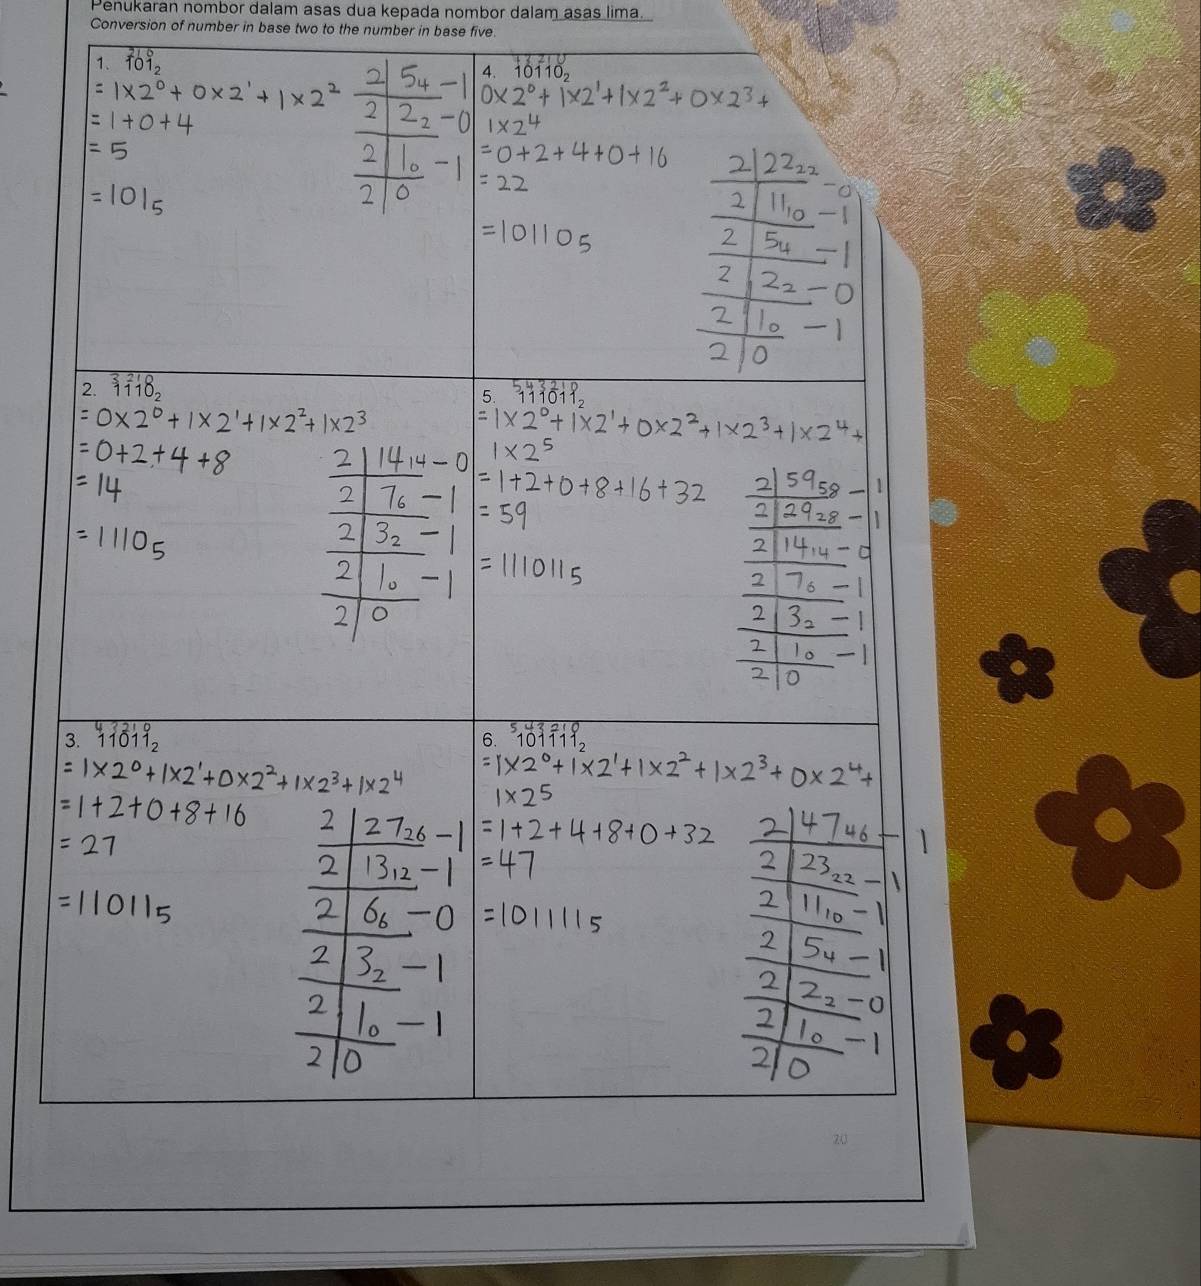 Penukaran nombor dalam asas dua kepada nombor dalam asas lima.
Conversion of number in base two to the number in base five.
1. 101₂
2 1 0
= 1×2⁰ + 0×2¹ + 1×2²
= 1+0+4
= 5
= 101₅
2 | 5₄ - 1
2 | 2₂ - 0
2 | 1₀ - 1
2 | 0
4. 10110₂
4 3 2 1 0
0×2⁰ + 1×2¹ + 1×2² + 0×2³ +
1×2⁴
= 0+2+4+0+16
= 22
= 10110₅
2 | 22₂₂ - 0
2 | 11₁₀ - 1
2 | 5₄ - 1
2 | 2₂ - 0
2 | 1₀ - 1
2 | 0
2. 1110₂
3 2 1 0
= 0×2⁰ + 1×2¹ + 1×2² + 1×2³
= 0+2+4+8
= 14
= 1110₅
2 | 14₁₄ - 0
2 | 7₆ - 1
2 | 3₂ - 1
2 | 1₀ - 1
2 | 0
5. 111011₂
5 4 3 2 1 0
= 1×2⁰ + 1×2¹ + 0×2² + 1×2³ + 1×2⁴ +
1×2⁵
= 1+2+0+8+16+32
= 59
= 111011₅
2 | 59₅₈ - 1
2 | 29₂₈ - 1
2 | 14₁₄ - 0
2 | 7₆ - 1
2 | 3₂ - 1
2 | 1₀ - 1
2 | 0
3. 11011₂
4 3 2 1 0
= 1×2⁰ + 1×2¹ + 0×2² + 1×2³ + 1×2⁴
= 1+2+0+8+16
= 27
= 11011₅
2 | 27₂₆ - 1
2 | 13₁₂ - 1
2 | 6₆ - 0
2 | 3₂ - 1
2 | 1₀ - 1
2 | 0
6. 101111₂
5 4 3 2 1 0
= 1×2⁰ + 1×2¹ + 1×2² + 1×2³ + 0×2⁴ +
1×2⁵
= 1+2+4+8+0+32
= 47
= 101111₅
2 | 47₄₆ - 1
2 | 23₂₂ - 1
2 | 11₁₀ - 1
2 | 5₄ - 1
2 | 2₂ - 0
2 | 1₀ - 1
2 | 0
20